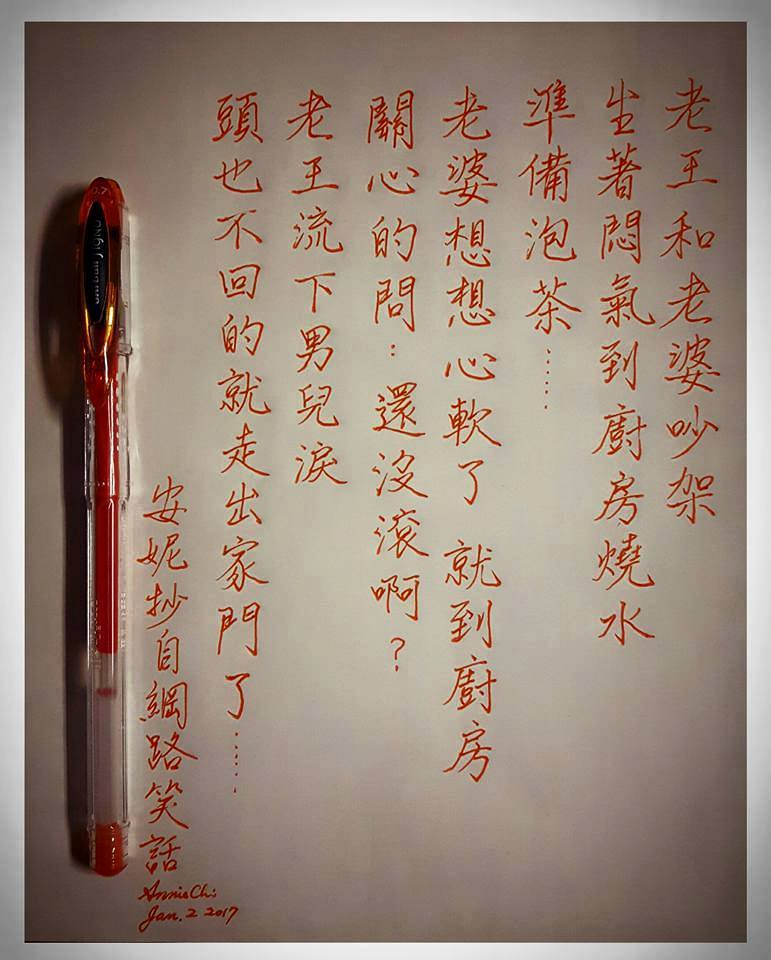 老王和老婆吵架
生著悶氣到廚房燒水
準備泡茶……
老婆想想心軟了 就到廚房
關心的問：還沒滾啊？
老王流下男兒淚
頭也不回的就走出家門了……
安妮抄自網路笑話
Annie Chi
Jan. 2 2017
0.7
SIGNO